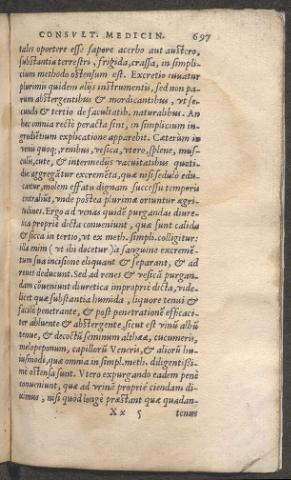 CONSVLT. MEDICIN. 697
tales oportere esse sapore acerbo aut austero,
substantia terrestri, frigida, crassa, in simpli-
cium methodo ostensum est. Excretio iuuatur
plurimis quidem alijs instrumentis, sed non pa-
rum abstergentibus & mordicantibus, vt se-
cundo & tertio de facultatib. naturalibus. An
hæc omnia rectè peracta sint, in simplicium in-
gredientium explicatione apparebit. Cæterum in
venis quoq;, renibus, vesica, vtero, splene, mus-
culis, cute, & intermedijs vacuitatibus quoti-
die aggregātur excremēta, quæ nisi sedulò edu-
cātur, molem effatu dignam successu temporis
contrahūt, vnde postea plurimæ oriuntur ægri-
tudines. Ergo ad venas quidē purgandas diure-
tica propriè dicta conueniunt, quæ sunt calida
& sicca in tertio, vt ex meth. simpli. colligitur:
illa enim (vt ibi docetur) ia sanguine excremē-
tum sua incisione eliquant & separant, & ad
renes deducunt. Sed ad renes & vesicā purgan-
dam cōueniunt diuretica impropriè dicta, vide-
licet quæ substantia humida, liquore tenui &
facilè penetrante, & post penetrationē efficaci-
ter abluente & abstergente, sicut est vinū albū
tenue, & decoctū seminum altheæ, cucumeris,
melopeponum, capillorū Veneris, & aliorū hu-
iusmodi, quæ omnia in simpl. meth. diligentissi-
mè ostensa sunt. Vtero expurgando eadem penè
conueniunt, quæ ad vrinā propriè ciendam di-
ximus, nisi quòd longè præstant quæ quadan-
Xx 5 tenus